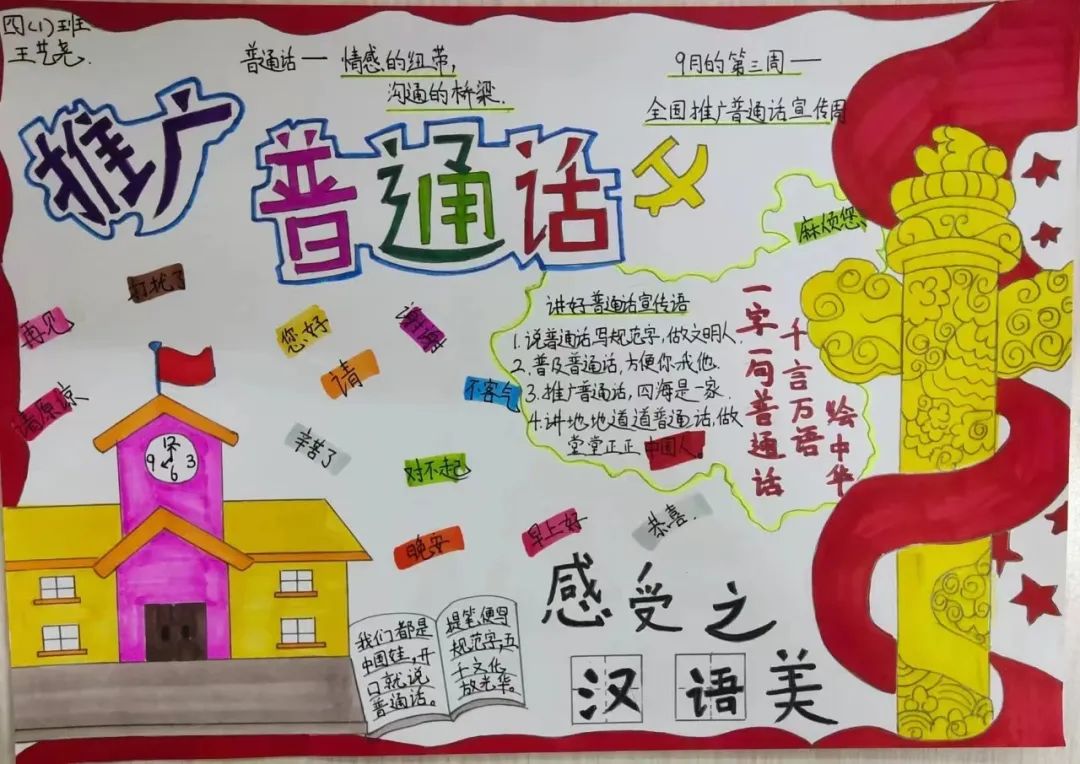 四(1)班
王艺尧.
普通话——情感的纽带,
沟通的桥梁.
9月的第三周——
全国推广普通话宣传周
推广
普通话
麻烦您
打扰了
再见
您好
谢谢
请
不客气
请原谅
辛苦了
对不起
晚安
早上好
恭喜.
讲好普通话宣传语
1.说普通话,写规范字,做文明人.
2.普及普通话,方便你我他.
3.推广普通话,四海是一家.
4.讲地地道道普通话,做
堂堂正正中国人。
一字一句普通话
千言万语
绘中华
12
9 3
6
我们都是
中国娃,开
口就说
普通话。
提笔便写
规范字,五
千文化
放光华。
感受之
汉语美